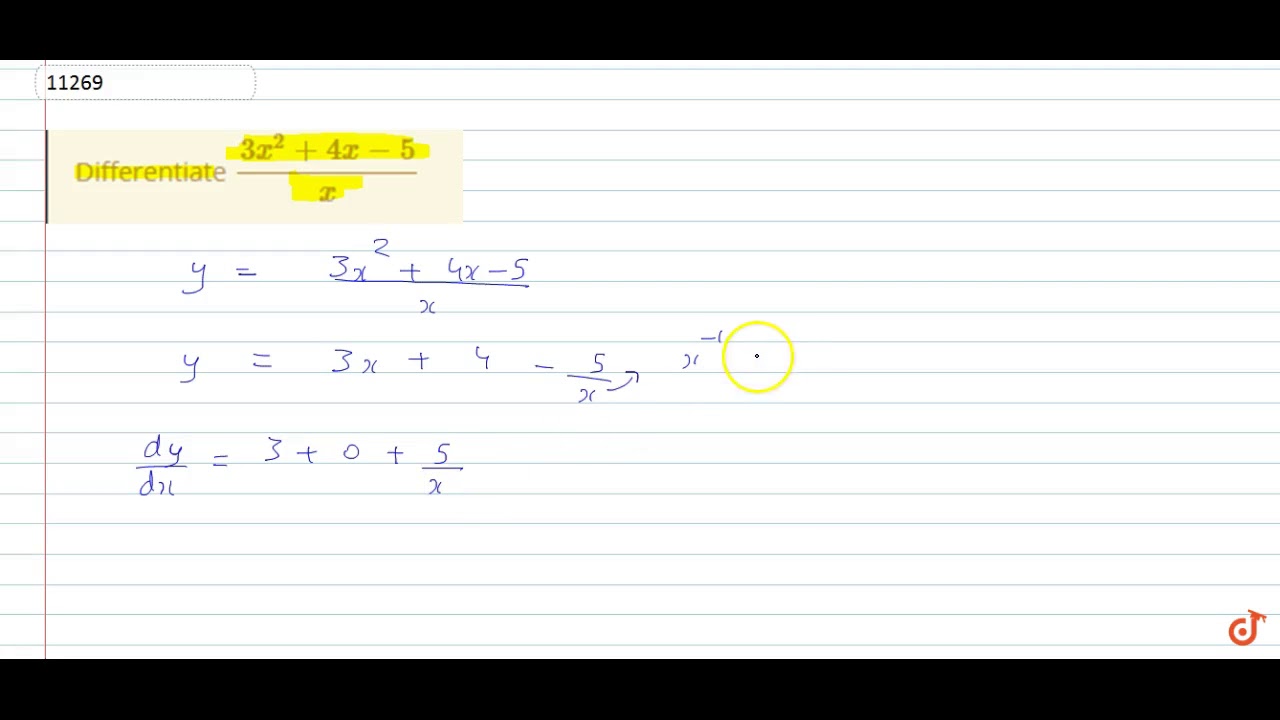 11269
Differentiate (3x² + 4x − 5)/x
y = (3x² + 4x − 5)/x
y = 3x + 4 − 5/x x⁻¹
dy/dx = 3 + 0 + 5/x